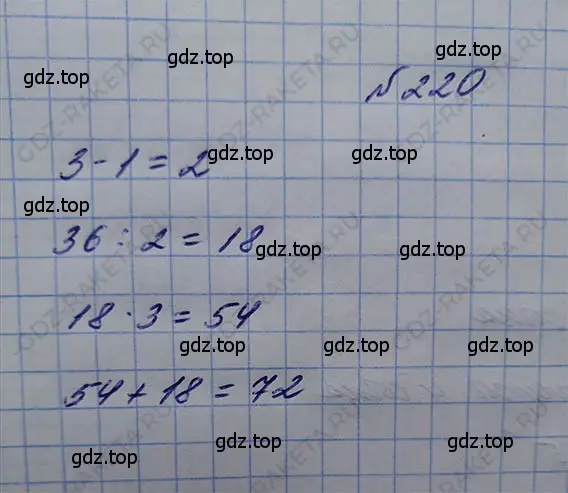 gdz.top
gdz.top
gdz.top
№220
gdz.top gdz.top
3-1=2
gdz.top
36:2=18
gdz.top gdz.top
18·3=54
gdz.top gdz.top
54+18=72
gdz.top gdz.top gdz.top
GDZ-RAKETA.RU
GDZ-RAKETA.RU
GDZ-RAKETA.RU
GDZ-RAKETA.RU
GDZ-RAKETA.RU
GDZ-RAKETA.RU